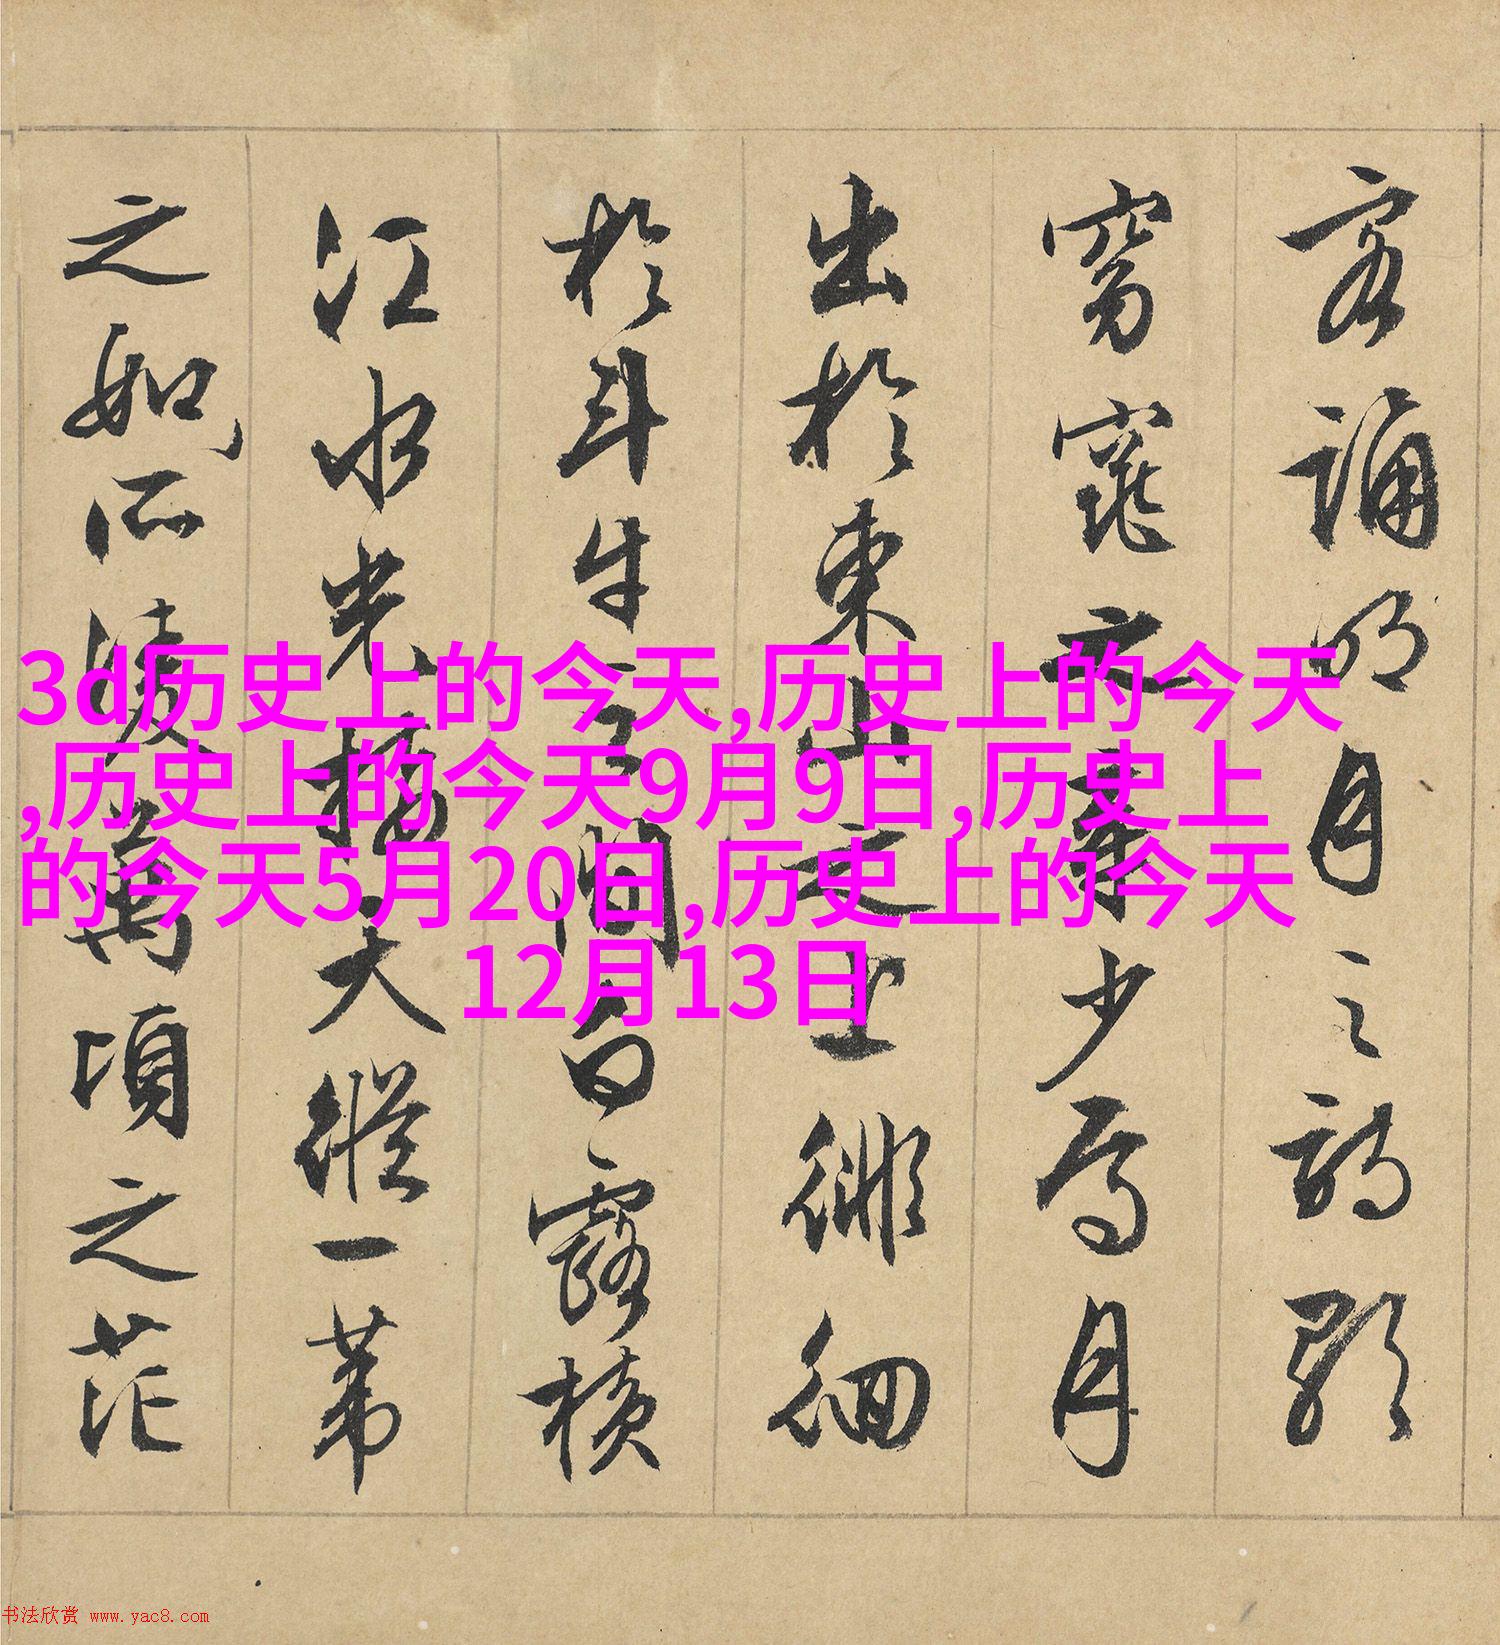 客誦明月之詩歌
窈窕之章少焉月
出於東山之上徘徊
於斗牛之間白露橫
江水光接天縱一葦
之如所凌萬頃之茫
3d历史上的今天,历史上的今天
,历史上的今天9月9日,历史上
的今天5月20日,历史上的今天
12月13日
书法欣赏 www.yac8.com